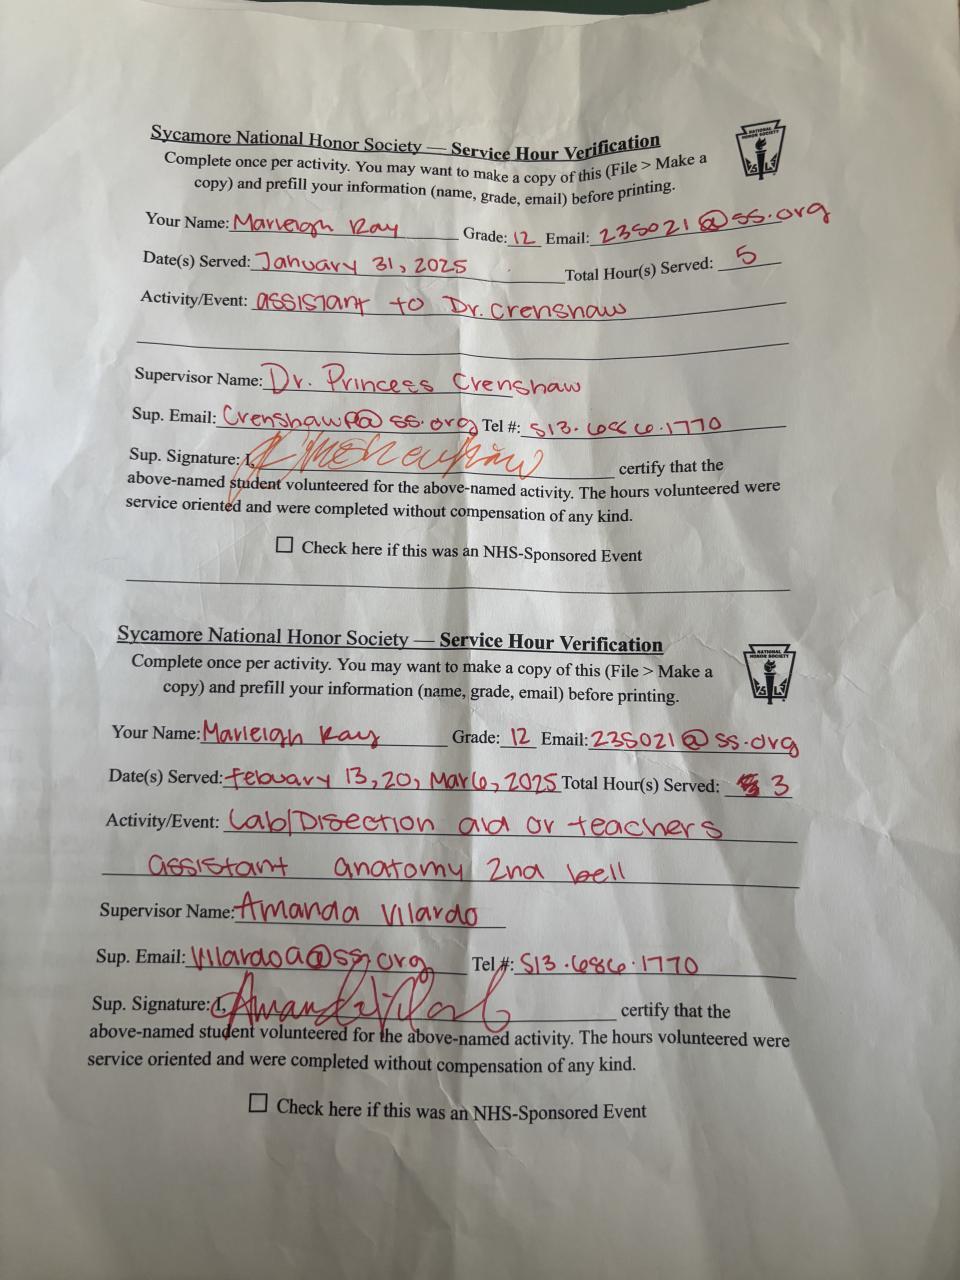 Sycamore National Honor Society — Service Hour Verification
NATIONAL
HONOR SOCIETY
Complete once per activity. You may want to make a copy of this (File > Make a
copy) and prefill your information (name, grade, email) before printing.
Your Name: Marleigh Ray Grade: 12 Email: 235021@ss.org
Date(s) Served: January 31, 2025 Total Hour(s) Served: 5
Activity/Event: assistant to Dr. Crenshaw
Supervisor Name: Dr. Princess Crenshaw
Sup. Email: CrenshawP@ss.org Tel #: 513.686.1770
Sup. Signature: I, certify that the
above-named student volunteered for the above-named activity. The hours volunteered were
service oriented and were completed without compensation of any kind.
☐ Check here if this was an NHS-Sponsored Event
Sycamore National Honor Society — Service Hour Verification
NATIONAL
HONOR SOCIETY
Complete once per activity. You may want to make a copy of this (File > Make a
copy) and prefill your information (name, grade, email) before printing.
Your Name: Marleigh Ray Grade: 12 Email: 235021@ss.org
Date(s) Served: Febuary 13, 20, Mar 6, 2025 Total Hour(s) Served: 3
Activity/Event: Lab/Disection aid or teachers
assistant anatomy 2nd bell
Supervisor Name: Amanda Vilardo
Sup. Email: Vilardoa@ss.org Tel #: 513.686.1770
Sup. Signature: I, Amanda Vilardo certify that the
above-named student volunteered for the above-named activity. The hours volunteered were
service oriented and were completed without compensation of any kind.
☐ Check here if this was an NHS-Sponsored Event